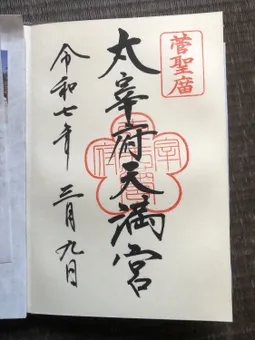 菅聖廟
太宰府天満宮
令和七年 三月九日